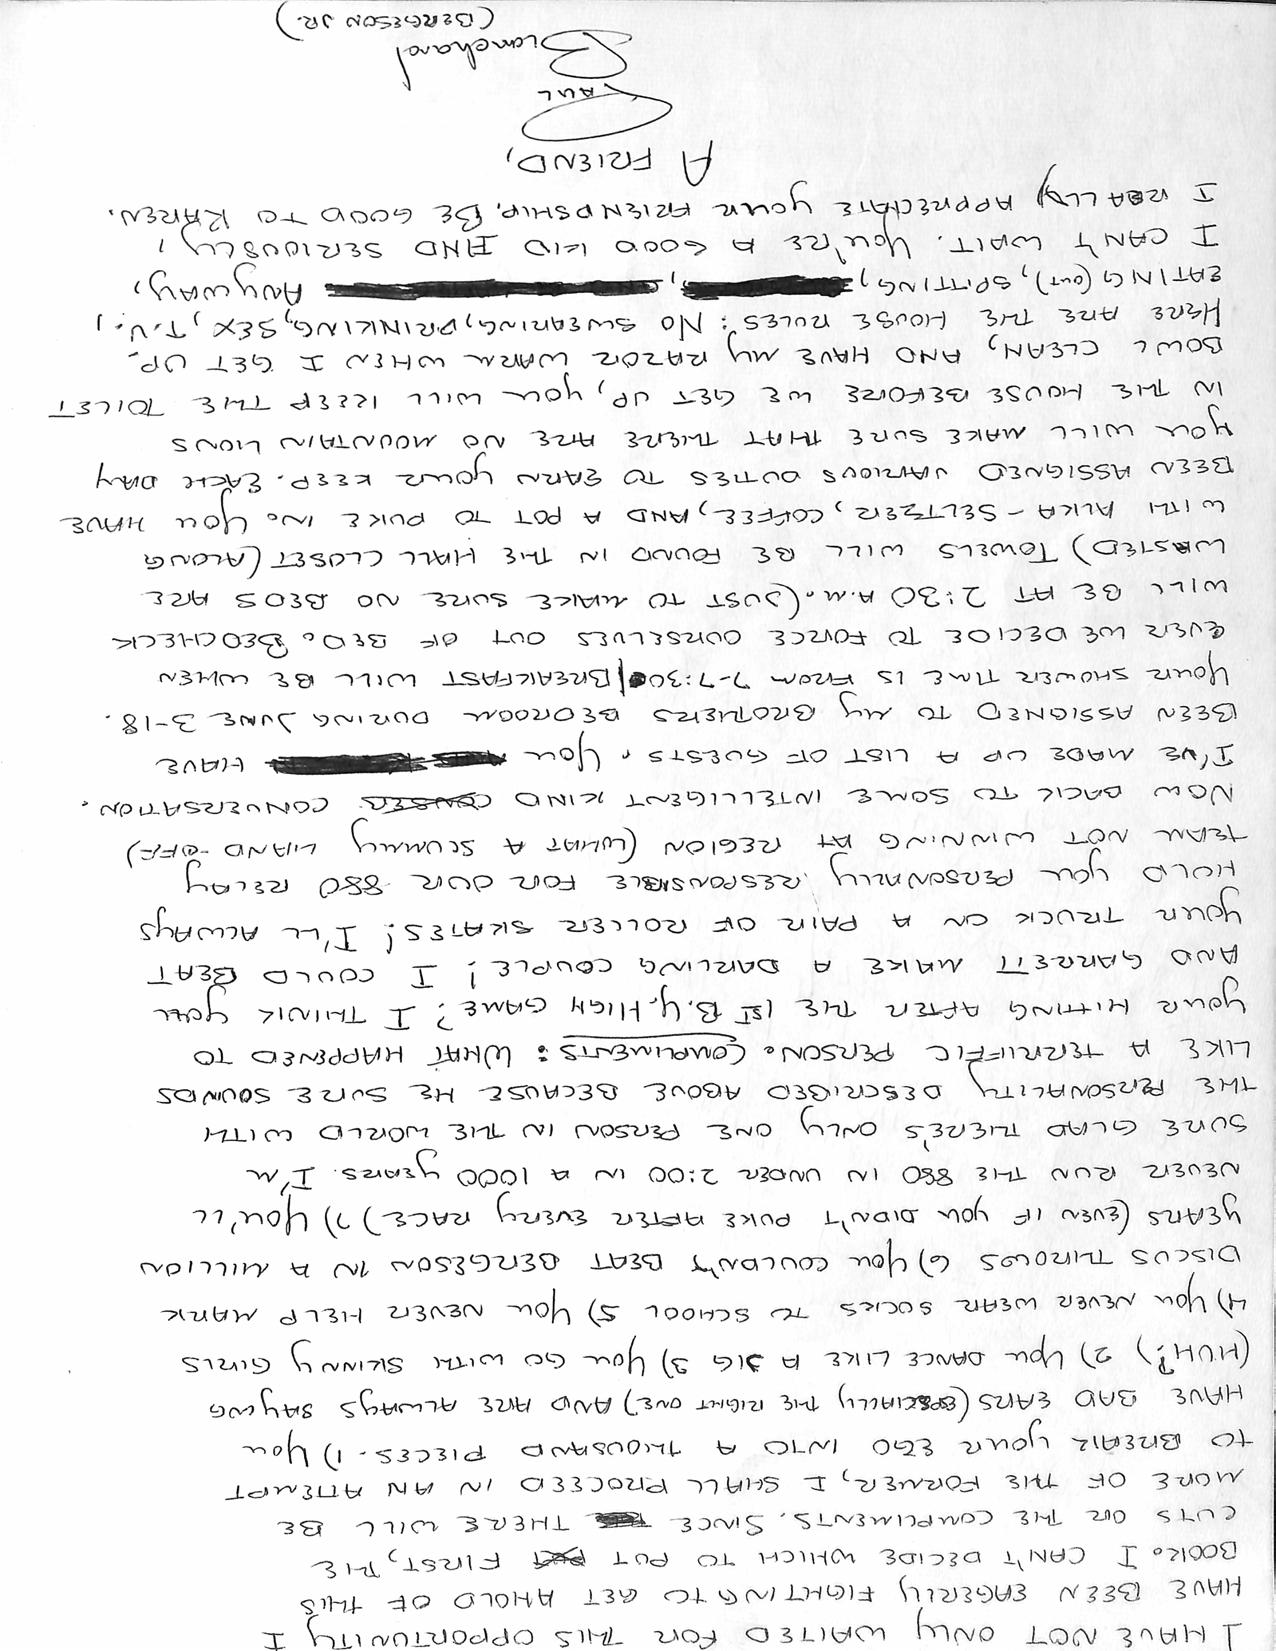 I HAVE NOT ONLY WAITED FOR THIS OPPORTUNITY I
HAVE BEEN EAGERLY FIGHTING TO GET AHOLD OF THIS
BOOK. I CAN'T DECIDE WHICH TO PUT FIRST, THE
CUTS OR THE COMPLIMENTS. SINCE THERE WILL BE
MORE OF THE FORMER, I SHALL PROCEED IN AN ATTEMPT
TO BREAK YOUR EGO INTO A THOUSAND PIECES. 1) YOU
HAVE BAD EARS (ESPECIALLY THE RIGHT ONE) AND ARE ALWAYS SAYING
(HUH?) 2) YOU DANCE LIKE A JIG 3) YOU GO WITH SKINNY GIRLS
4) YOU NEVER WEAR SOCKS TO SCHOOL 5) YOU NEVER HELP MARK
DISCUS THROWS 6) YOU COULDN'T BEAT BERGESON IN A MILLION
YEARS (EVEN IF YOU DIDN'T PUKE AFTER EVERY RACE) 7) YOU'LL
NEVER RUN THE 880 IN UNDER 2:00 IN A 1000 YEARS. I'M
SURE GLAD THERE'S ONLY ONE PERSON IN THE WORLD WITH
THE PERSONALITY DESCRIBED ABOVE BECAUSE HE SURE SOUNDS
LIKE A TERRIFFIC PERSON. COMPLIMENTS: WHAT HAPPENED TO
YOUR HITTING AFTER THE 1ST B.Y. HIGH GAME? I THINK YOU
AND GARRETT MAKE A DARLING COUPLE! I COULD BEAT
YOUR TRUCK ON A PAIR OF ROLLER SKATES! I'LL ALWAYS
HOLD YOU PERSONALLY RESPONSIBLE FOR OUR 880 RELAY
TEAM NOT WINNING AT REGION (WHAT A SCUMMY HAND-OFF)
NOW BACK TO SOME INTELLIGENT KIND CONVERSATION.
I'VE MADE UP A LIST OF GUESTS. YOU HAVE
BEEN ASSIGNED TO MY BROTHERS BEDROOM DURING JUNE 3-18.
YOUR SHOWER TIME IS FROM 7-7:30 BREAKFAST WILL BE WHEN
EVER WE DECIDE TO FORCE OURSELVES OUT OF BED. BEDCHECK
WILL BE AT 2:30 A.M. (JUST TO MAKE SURE NO BEDS ARE
WASTED) TOWELS WILL BE FOUND IN THE HALL CLOSET (ALONG
WITH ALKA-SELTZER, COFFEE, AND A POT TO PUKE IN. YOU HAVE
BEEN ASSIGNED VARIOUS DUTIES TO EARN YOUR KEEP. EACH DAY
YOU WILL MAKE SURE THAT THERE ARE NO MOUNTAIN LIONS
IN THE HOUSE BEFORE WE GET UP, YOU WILL KEEP THE TOILET
BOWL CLEAN, AND HAVE MY RAZOR WARM WHEN I GET UP.
HERE ARE THE HOUSE RULES: NO SWEARING, DRINKING, SEX, T.V.,
EATING (OUT), SPITTING, ANYWAY,
I CAN'T WAIT. YOU'RE A GOOD KID AND SERIOUSLY,
I REALLY APPRECIATE YOUR FRIENDSHIP. BE GOOD TO KAREN.
A FRIEND,
PAUL
Blanchard
(BERGESON JR.)